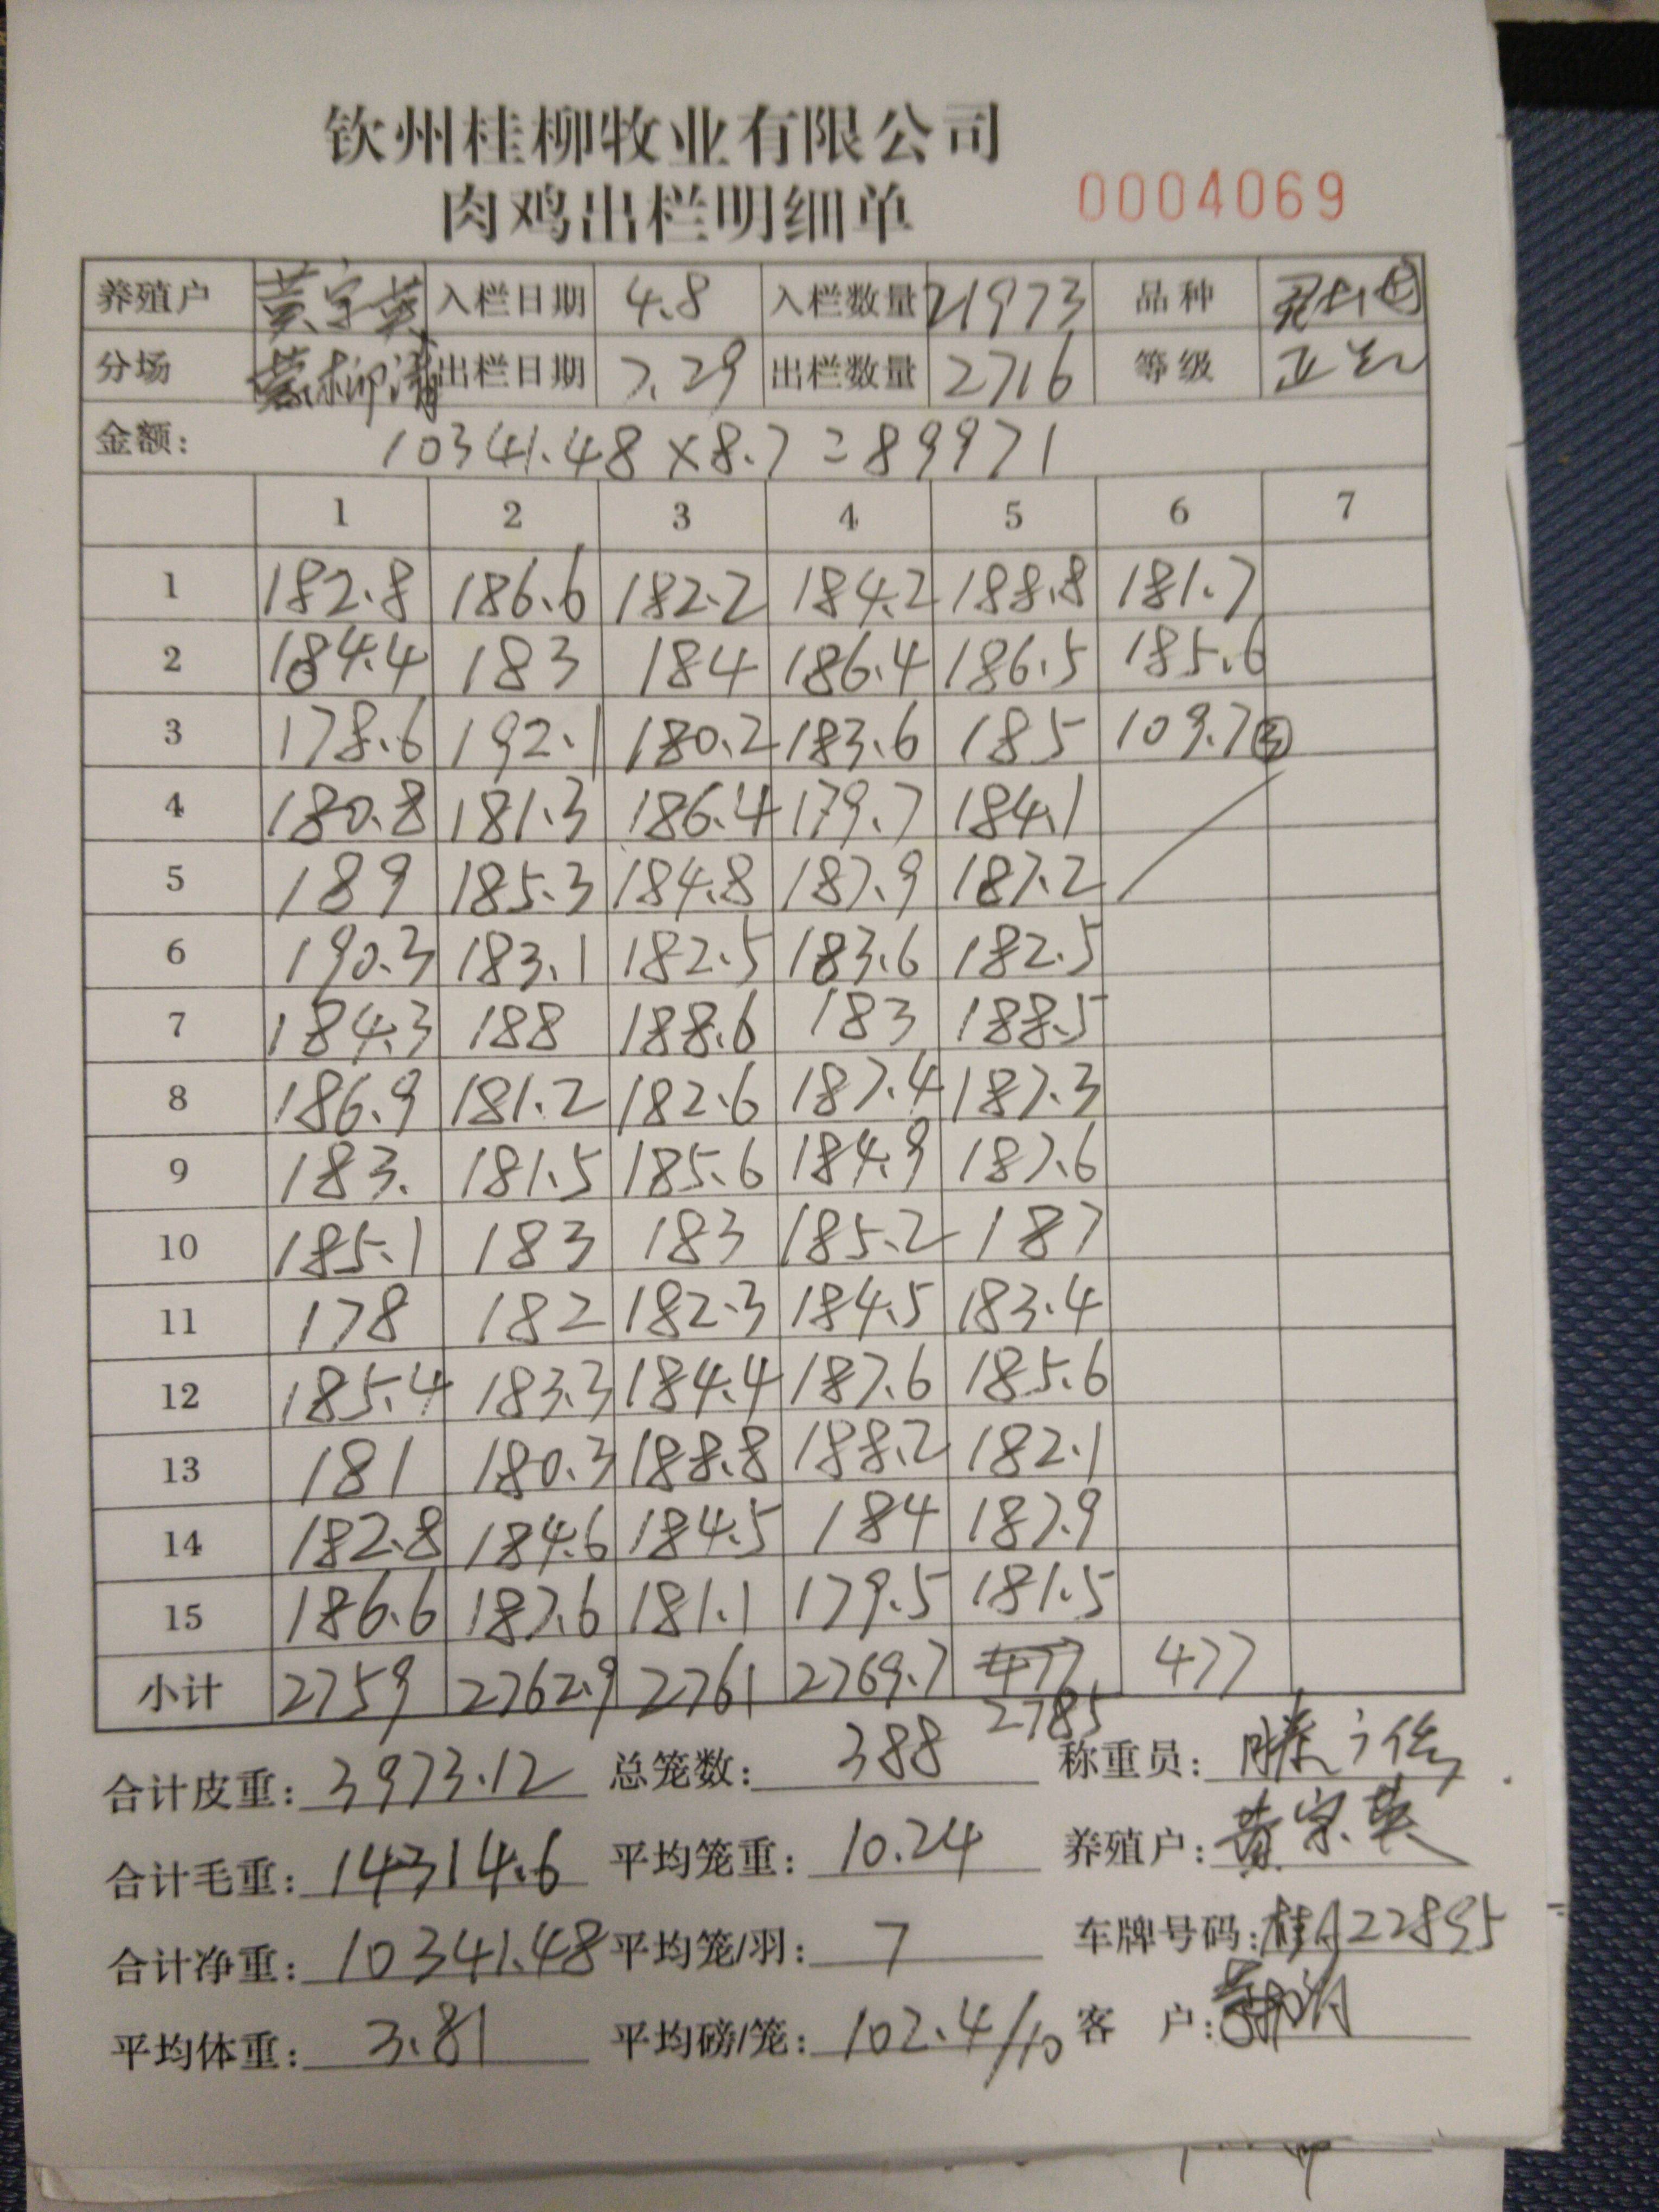 钦州桂柳牧业有限公司
肉鸡出栏明细单 0004069
养殖户 黄宗英 入栏日期 4.8 入栏数量 21973 品种
分场 出栏日期 7.29 出栏数量 2716 等级 正红
金额: 10341.48×8.7=89971
1 2 3 4 5 6 7
1 182.8 186.6 182.2 184.2 188.8 181.7
2 184.4 183 184 186.4 186.5 185.6
3 178.6 192.1 180.2 183.6 185 109.7③
4 180.8 181.3 186.4 179.7 184.1
5 189 185.3 184.8 187.9 187.2
6 190.3 183.1 182.5 183.6 182.5
7 184.3 188 188.6 183 188.5
8 186.9 181.2 182.6 187.4 187.3
9 183. 181.5 185.6 184.9 187.6
10 185.1 183 183 185.2 187
11 178 182 182.3 184.5 183.4
12 185.4 183.3 184.4 187.6 185.6
13 181 180.3 188.8 188.2 182.1
14 182.8 184.6 184.5 184 187.9
15 186.6 187.6 181.1 179.5 181.5
小计 2759 2762.9 2761 2769.7 477 477
2785
合计皮重: 3973.12 总笼数: 388 称重员:
合计毛重: 14314.6 平均笼重: 10.24 养殖户: 黄宗英
合计净重: 10341.48 平均笼/羽: 7 车牌号码: 桂A22895
平均体重: 3.81 平均磅/笼: 102.4/10 客 户: